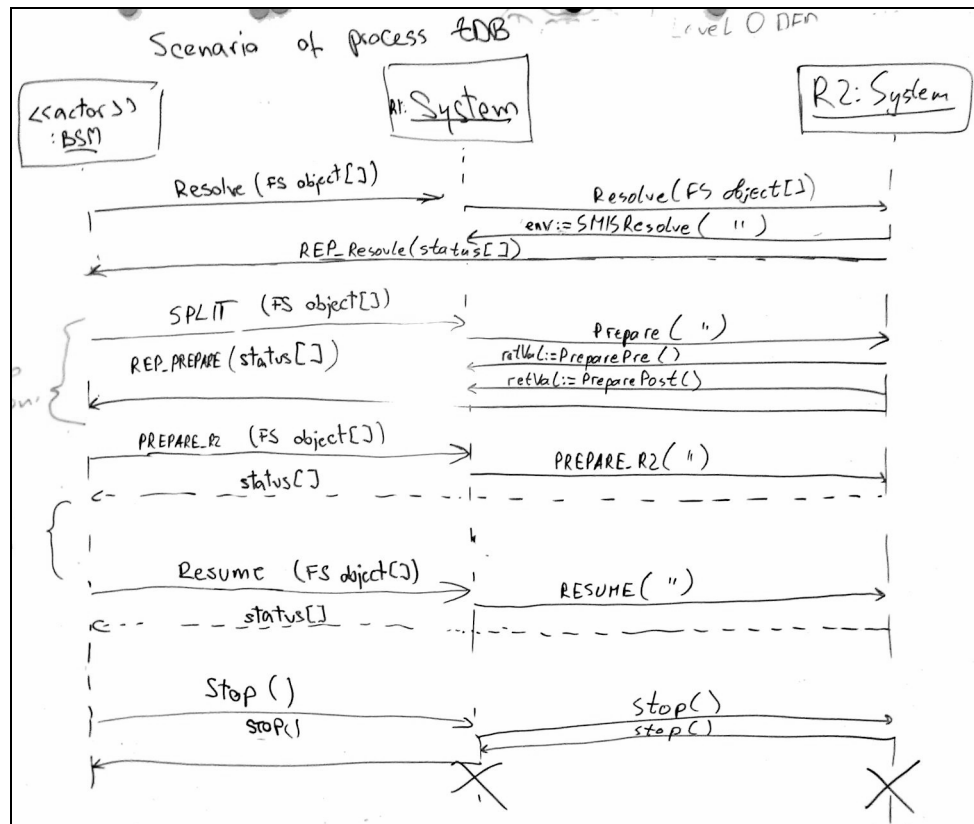 Scenario of process tDB
Level 0 DFD
<<actor>>
:BSM
R1: System
R2: System
Resolve (FS object[])
Resolve(FS object[])
env:=SMISResolve( " )
REP_Resovle(status[])
SPLIT (FS object[])
Prepare( " )
REP_PREPARE(status[])
retVal:=PreparePre()
retVal:=PreparePost()
PREPARE_R2 (FS object[])
PREPARE_R2( " )
status[]
Resume (FS object[])
RESUME( " )
status[]
Stop ()
stop()
STOP()
stop()